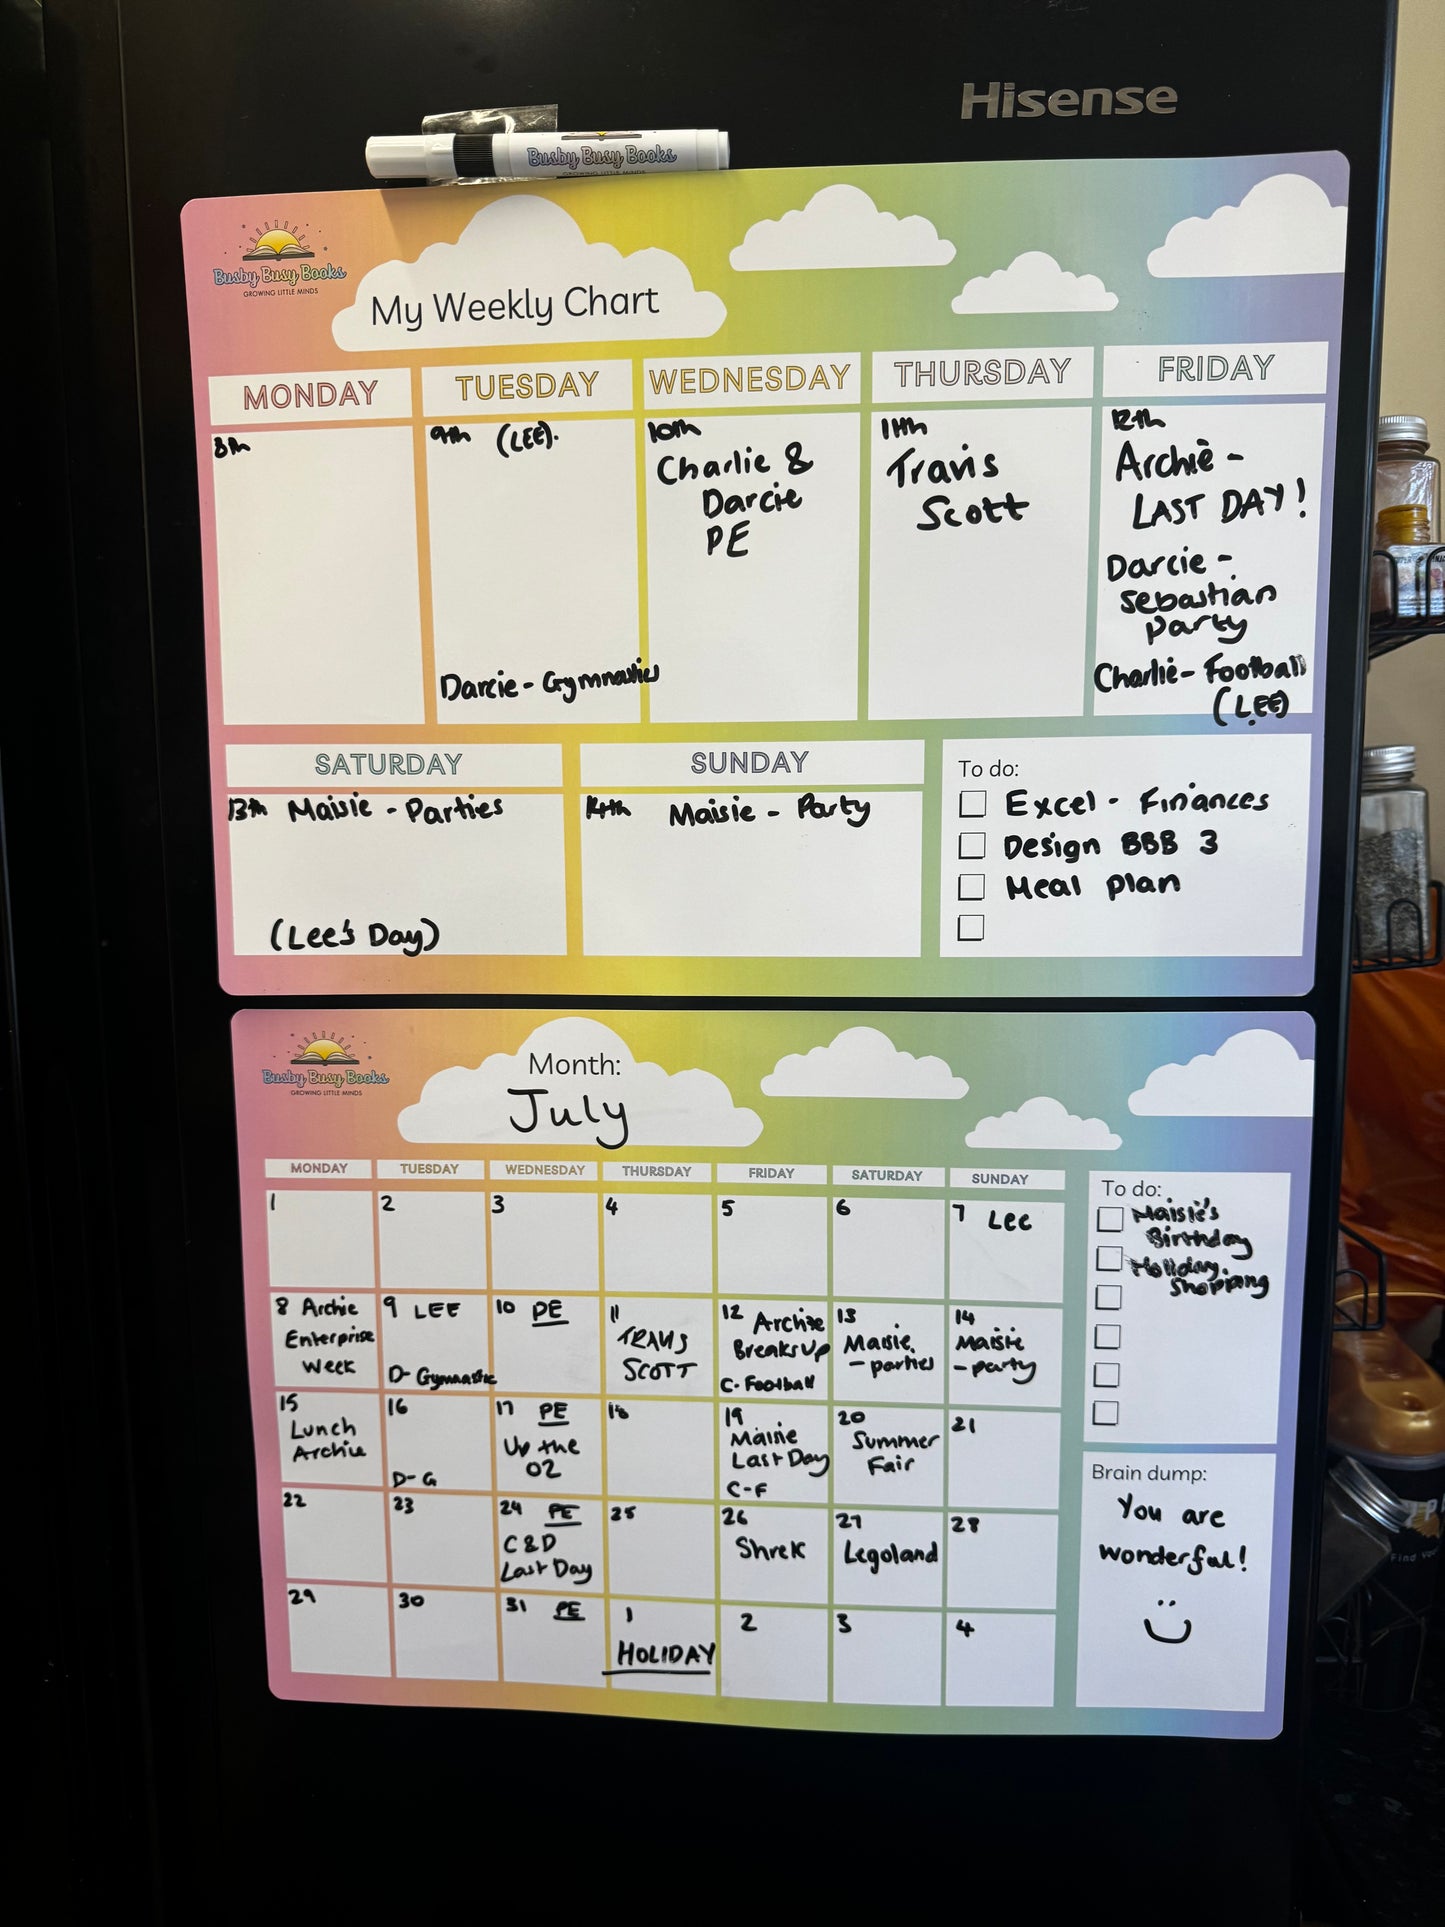 Hisense
Busby Busy Books
GROWING LITTLE MINDS
Busby Busy Books
GROWING LITTLE MINDS
My Weekly Chart
MONDAY
8th
TUESDAY
9th (LEE).
Darcie - Gymnastics
WEDNESDAY
10th
Charlie &
Darcie
PE
THURSDAY
11th
Travis
Scott
FRIDAY
12th
Archie -
LAST DAY!
Darcie -
Sebastian
Party
Charlie - Football
(LEE)
SATURDAY
13th Maisie - Parties
(Lee's Day)
SUNDAY
14th Maisie - Party
To do:
Excel - Finances
Design BBB 3
Meal plan
Busby Busy Books
GROWING LITTLE MINDS
Month:
July
MONDAY TUESDAY WEDNESDAY THURSDAY FRIDAY SATURDAY SUNDAY
1
2
3
4
5
6
7 Lee
8 Archie
Enterprise
Week
9 LEE
D- Gymnastic
10 PE
11
TRAVIS
SCOTT
12 Archie
Breaks Up
C-Football
13
Maisie
- parties
14
Maisie
- party
15
Lunch
Archie
16
D-G
17 PE
Up the
O2
18
19
Maisie
Last Day
C-F
20
Summer
Fair
21
22
23
24 PE
C&D
Last Day
25
26
Shrek
27
Legoland
28
29
30
31 PE
1
HOLIDAY
2
3
4
To do:
Maisie's
Birthday
Holiday.
Shopping
Brain dump:
You are
wonderful!